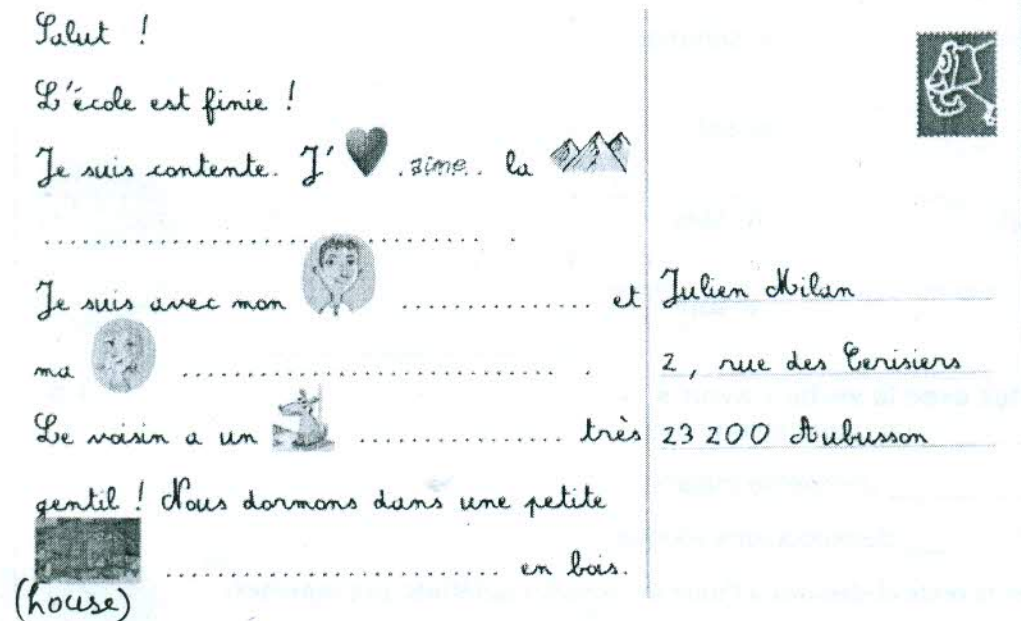 Salut !
L'école est finie !
Je suis contente. J' aime la
Je suis avec mon ........................ et
ma ........................ .
Le voisin a un ................ très
gentil ! Nous dormons dans une petite
........................ en bois.
(house)
Julien Milan
2, rue des Cerisiers
23 200 Aubusson